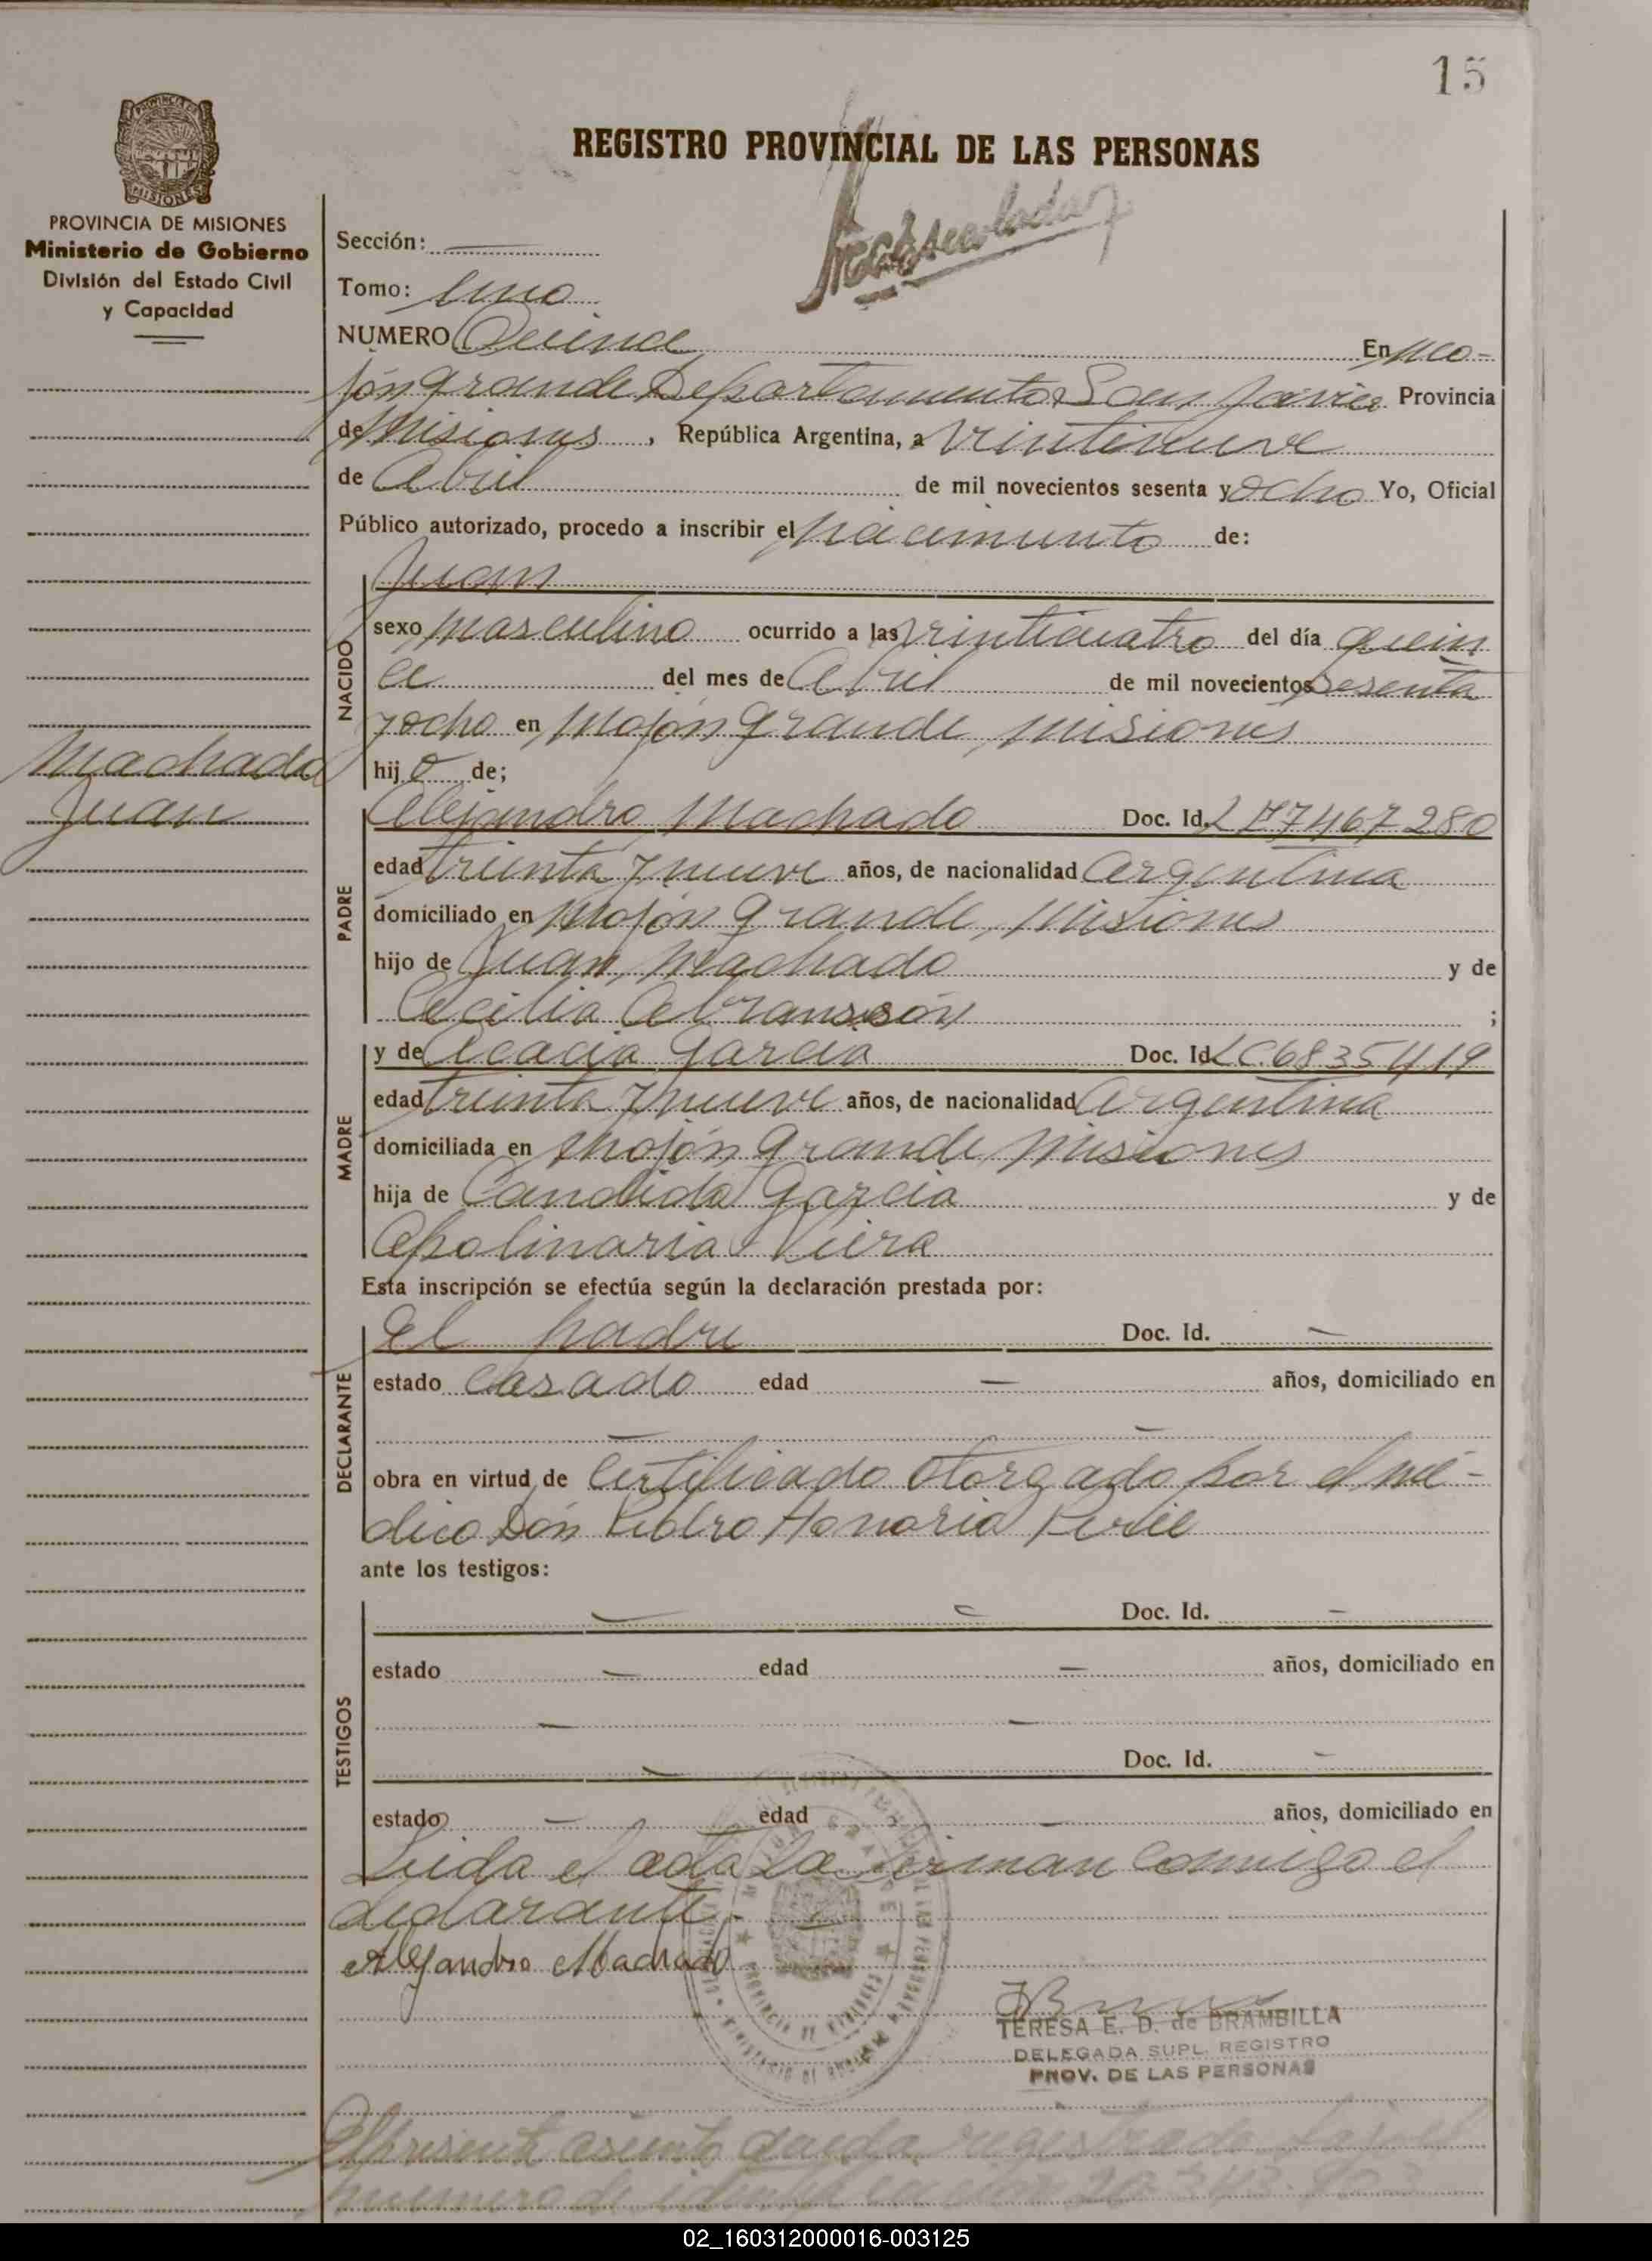 15
REGISTRO PROVINCIAL DE LAS PERSONAS
PROVINCIA DE MISIONES
Ministerio de Gobierno
División del Estado Civil
y Capacidad
Sección:
Tomo: Uno
NUMERO Quince En Mo-
jón Grande Departamento San Javier Provincia
de Misiones, República Argentina, a veintinueve
de Abril de mil novecientos sesenta y ocho Yo, Oficial
Público autorizado, procedo a inscribir el nacimiento de:
NACIDO
Juan
sexo masculino ocurrido a las veinticuatro del día quin
ce del mes de Abril de mil novecientos sesenta
y ocho en Mojón Grande, Misiones
Machado
Juan
hijo de;
PADRE
Alejandro Machado Doc. Id. 7467280
edad treinta y nueve años, de nacionalidad Argentina
domiciliado en Mojón Grande, Misiones
hijo de Juan Machado y de
Cecilia ;
MADRE
y de Acacia Garcia Doc. Id. LC6835419
edad treinta y nueve años, de nacionalidad Argentina
domiciliada en Mojón Grande, Misiones
hija de Candido Garcia y de
Apolinaria Viera
Esta inscripción se efectúa según la declaración prestada por:
DECLARANTE
El padre Doc. Id. -
estado Casado edad - años, domiciliado en
- -
obra en virtud de Certificado otorgado por el mé-
dico Dón Pedro Honorio
ante los testigos:
TESTIGOS
- - Doc. Id. -
estado - edad - años, domiciliado en
- -
- Doc. Id. -
estado - edad - años, domiciliado en
Leida el acta La firman Conmigo el
declarante.-
Alejandro Machado
TERESA E. D. de BRAMBILLA
DELEGADA SUPL. REGISTRO
PROV. DE LAS PERSONAS
El presente asiento queda registrado bajo el
numero de
02_160312000016-003125